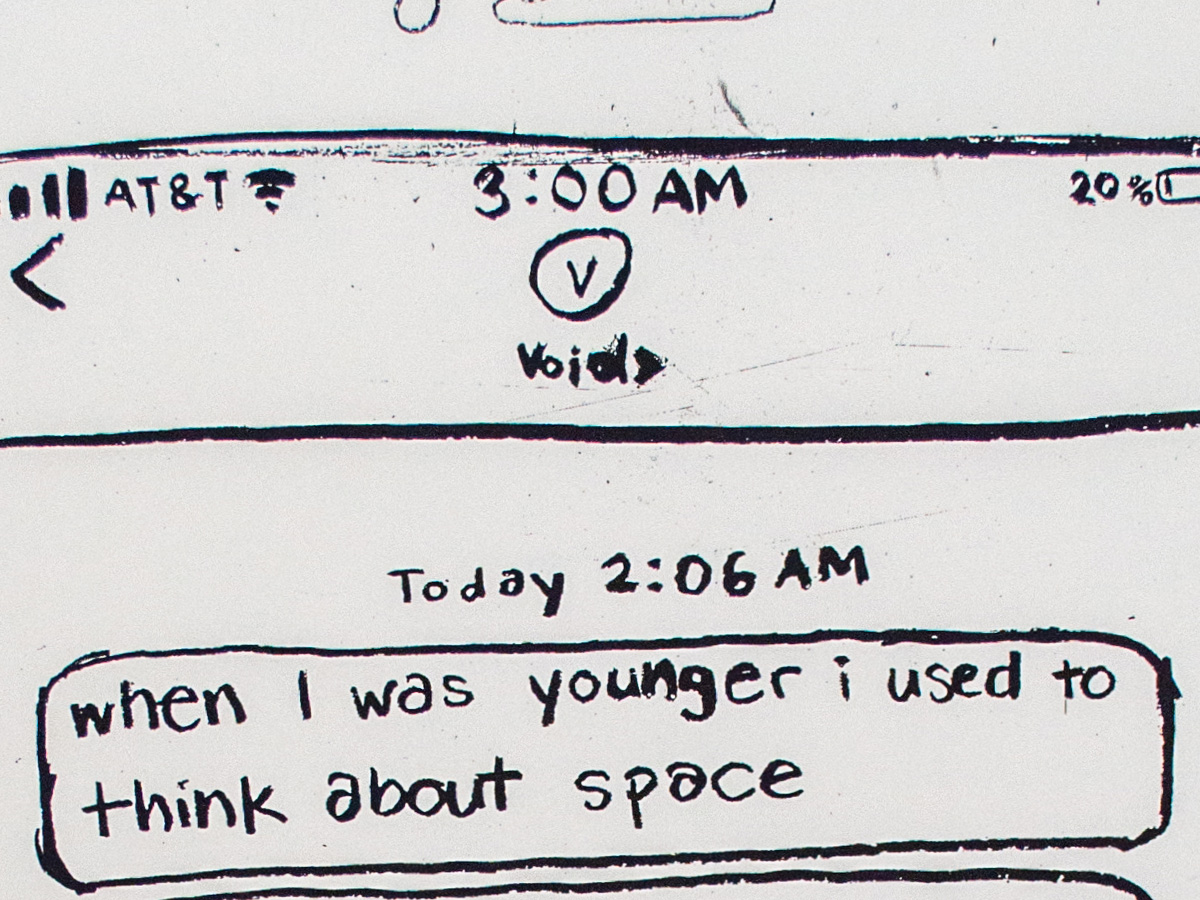 AT&T 3:00 AM 20%
<
V
Void>
Today 2:06 AM
when I was younger i used to
think about space